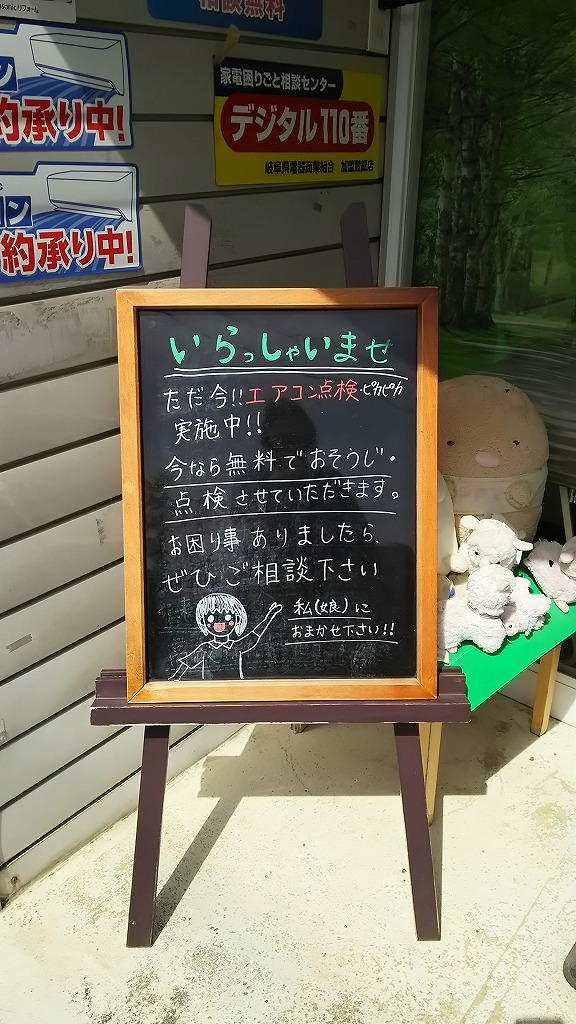 sonicリフォーム
相談無料
家電困りごと相談センター
デジタル110番
岐阜県電器商業組合 加盟登録店
ン
約承り中!
ン
約承り中!
いらっしゃいませ
ただ今!!エアコン点検・ピカピカ
実施中!!
今なら無料でおそうじ・
点検させていただきます。
お困り事ありましたら、
ぜひご相談下さい
私(娘)に
おまかせ下さい!!